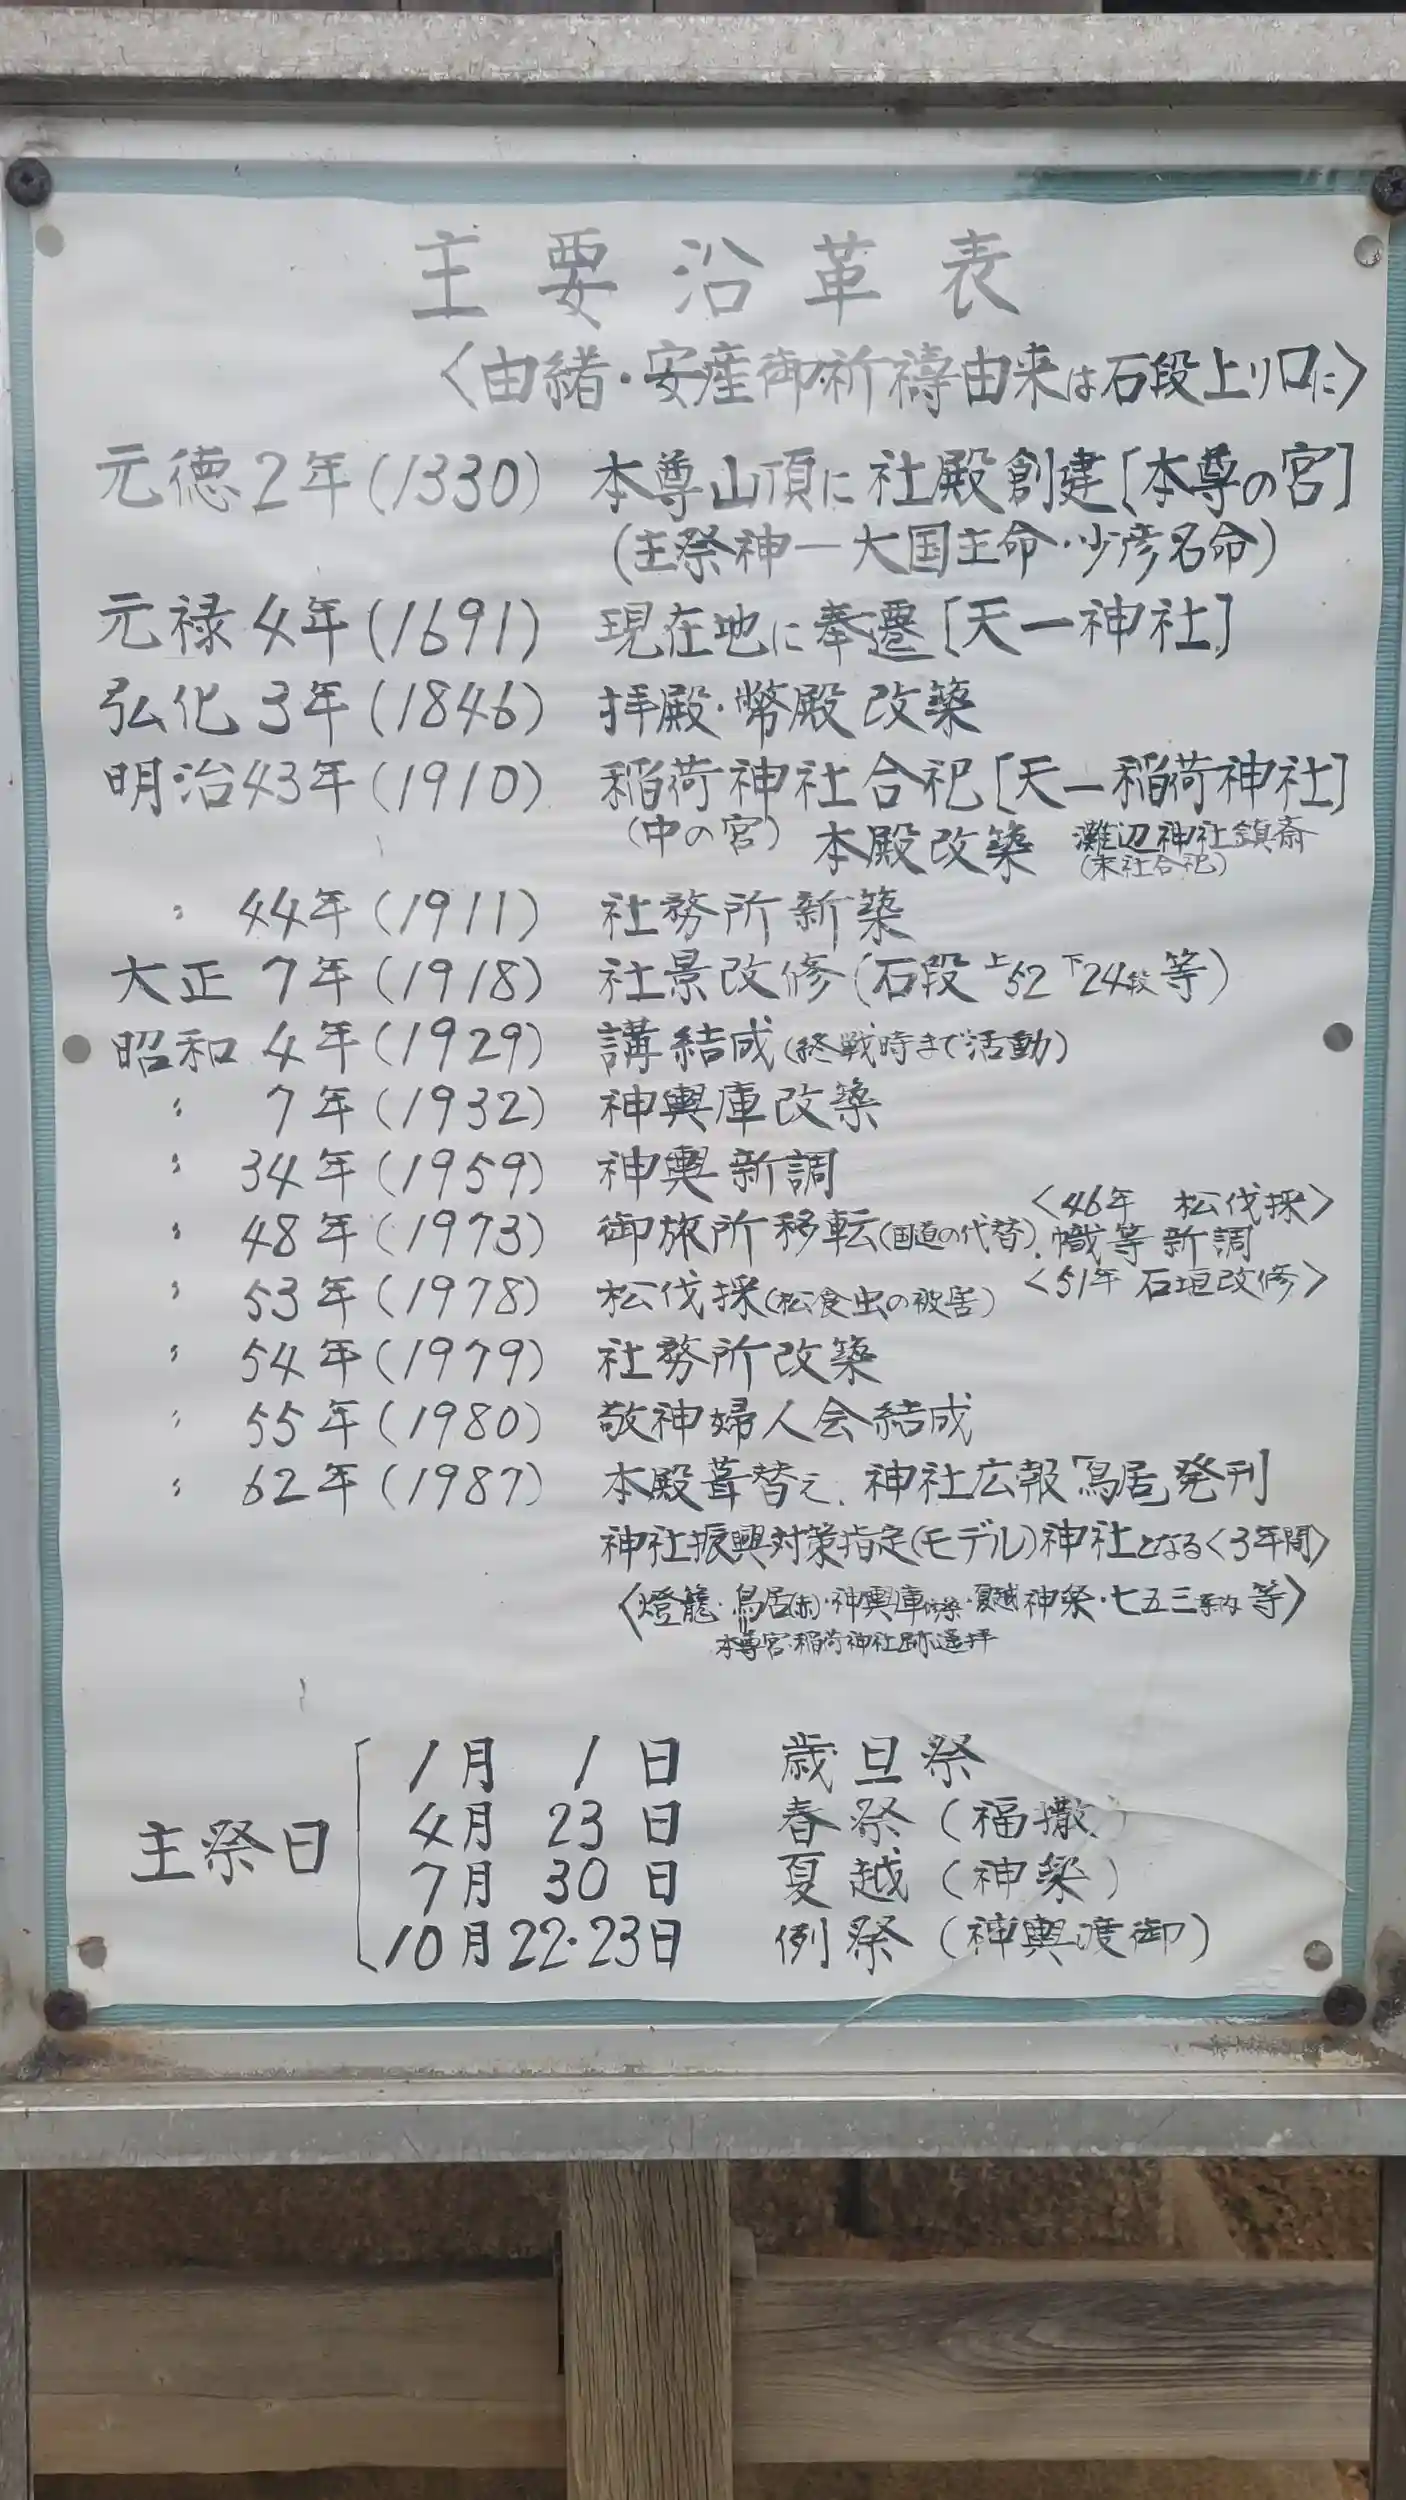 主要沿革表
〈由緒・安産御祈禱由来は石段上り口に〉
元徳2年(1330) 本尊山頂に社殿創建[本尊の宮]
(主祭神一大国主命・少彦名命)
元禄4年(1691) 現在地に奉遷[天一神社]
弘化3年(1846) 拝殿・幣殿改築
明治43年(1910) 稲荷神社合祀[天一稲荷神社]
(中の宮) 本殿改築 灘辺神社鎮斎
(末社合祀)
〃 44年(1911) 社務所新築
大正7年(1918) 社景改修(石段上52下24段等)
昭和4年(1929) 講結成(終戦時まで活動)
〃 7年(1932) 神輿庫改築
〃 34年(1959) 神輿新調
〈46年 松伐採〉
〃 48年(1973) 御旅所移転(国道の代替)、幟等新調
〈51年 石垣改修〉
〃 53年(1978) 松伐採(松食虫の被害)
〃 54年(1979) 社務所改築
〃 55年(1980) 敬神婦人会結成
〃 62年(1987) 本殿葺替え、神社広報「鳥居」発刊
神社振興対策指定(モデル)神社となる〈3年間〉
〈燈籠・鳥居・神輿庫修築・夏越神楽・七五三案内等〉
本尊宮・稲荷神社跡遥拝
主祭日
1月1日 歳旦祭
4月23日 春祭(福撒)
7月30日 夏越(神楽)
10月22・23日 例祭(神輿渡御)